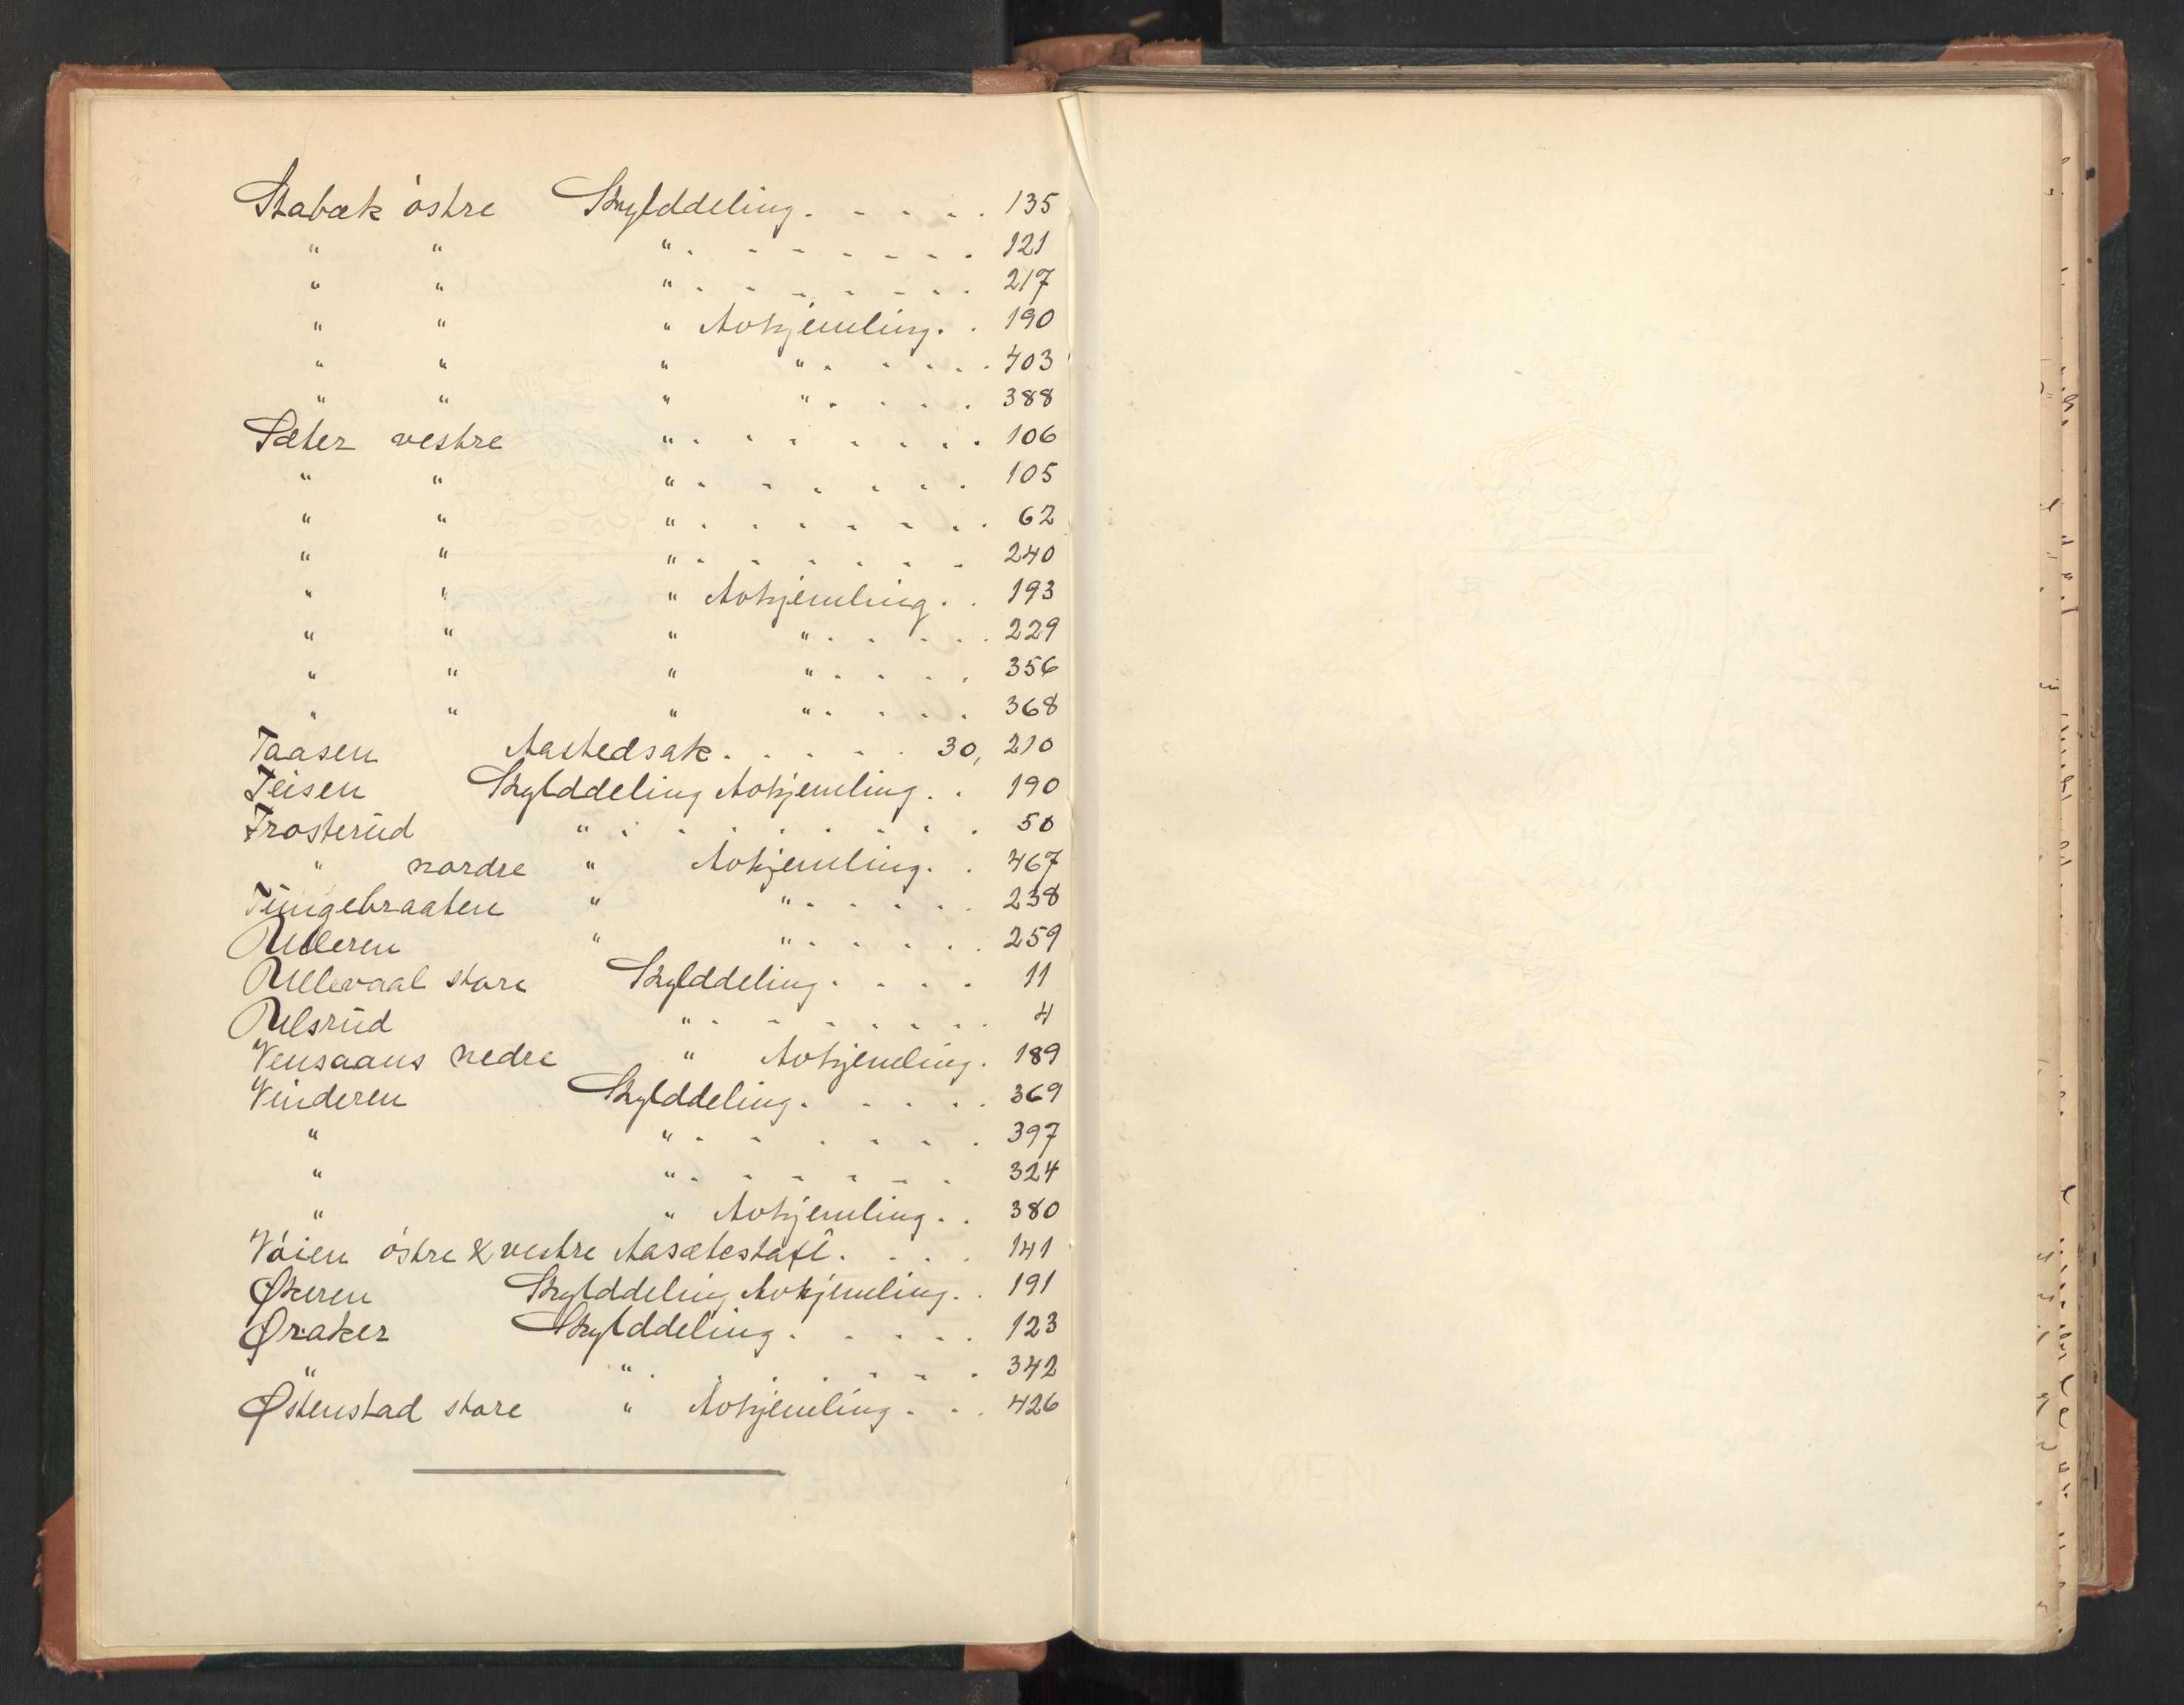 Stabæk östre Skylddeling. - - - - . 135
" " " . - - - - - - . 121
" " " . - - - - - - . 217
" " " Avhjemling. . 190
" " " " . - - - . 403
" " " " . - - - . 388
Sæter vestre " . - - - - - - . 106
" " " . - - - - - . 105
" " " . - - - - - - . 62
" " " . - - - - - - 240
" " " Avhjemling. . 193
" " " " . - - - . 229
" " " " . - - - . 356
" " " " . - - - . 368
Taasen Aastedsak. - - - - . 30, 210
Teisen Skylddeling Avhjemling. . 190
Trosterud " . - - - - - - . 50
" nordre " Avhjemling. . 467
Tungebraaten " " . - - - . 238
Ulleren " " . - - - . 259
Ullevaal store Skylddeling. - - - . 11
Ulsrud " . - - - - - . 4
Vensaans nedre " Avhjemling. 189
Vinderen Skylddeling. - - - - . 369
" " . - - - - - . 397
" " . - - - - - 324
" " Avhjemling. . 380
Vöien östre & vestre Aasætestaxt. - - - . 141
Økeren Skylddeling Avhjemling. . 191
Øraker Skylddeling. - - - - . 123
" " . - - - - - - . 342
Østenstad store " Avhjemling. - . 426